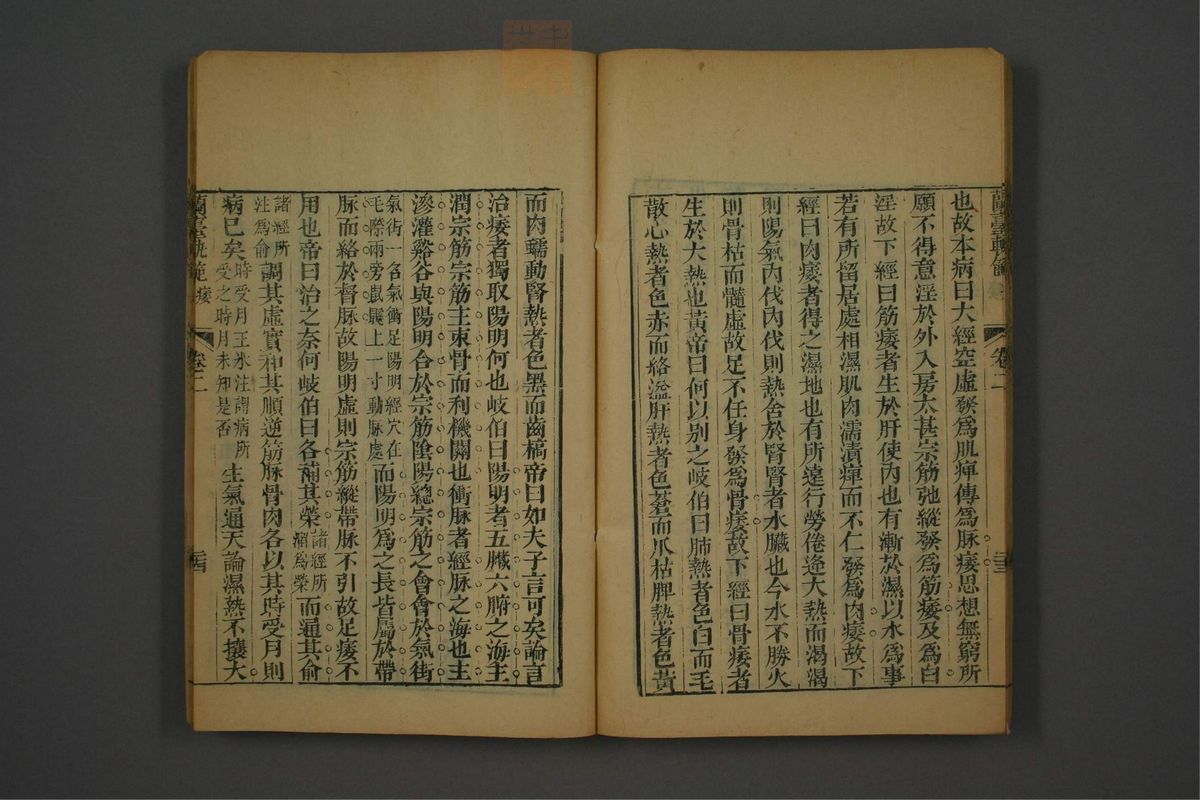 蘭臺軌範
卷二
二十三
也故本病曰大經空虛發爲肌痺傳爲脉痿思想無窮所
願不得意淫於外入房太甚宗筋弛縱發爲筋痿及爲白
淫故下經曰筋痿者生於肝使內也有漸於濕以水爲事
若有所留居處相濕肌肉濡漬痺而不仁發爲肉痿故下
經曰肉痿者得之濕地也有所遠行勞倦逢大熱而渴渴
則陽氣內伐內伐則熱舍於腎腎者水臟也今水不勝火
則骨枯而髓虛故足不任身發爲骨痿故下經曰骨痿者
生於大熱也黃帝曰何以別之岐伯曰肺熱者色白而毛
散心熱者色赤而絡溢肝熱者色蒼而爪枯脾熱者色黃
而肉蠕動腎熱者色黑而齒槁帝曰如夫子言可矣論言
治痿者獨取陽明何也岐伯曰陽明者五臟六腑之海主
潤宗筋宗筋主束骨而利機關也衝脉者經脉之海也主
滲灌谿谷與陽明合於宗筋陰陽緫宗筋之會會於氣街
氣街一名氣衝足陽明經穴在
毛際兩旁鼠鼷上一寸動脉處
而陽明爲之長皆屬於帶
脉而絡於督脉故陽明虛則宗筋縱帶脉不引故足痿不
用也帝曰治之奈何岐伯曰各補其滎
諸經所
溜爲滎
而通其俞
諸經所
注爲俞
調其虛實和其順逆筋脉骨肉各以其時受月則
病已矣
時受月王氷注謂病所
受之時月未知是否
生氣通天論濕熱不攘大
蘭臺軌範
痿
卷二
二十四